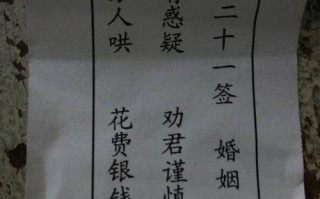 二十一签 婚姻
惑疑 劝君谨慎
人哄 花费银钱